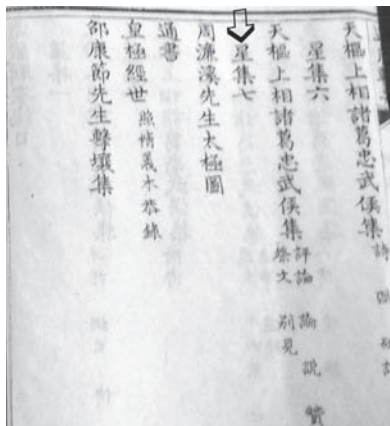 天樞上相諸葛忠武侯集 詩 賦
星集六
天樞上相諸葛忠武侯集 評論 論說 贊
祭文 別見
星集七
周濂溪先生太極圖
通書
皇極經世
邵康節先生擊壤集